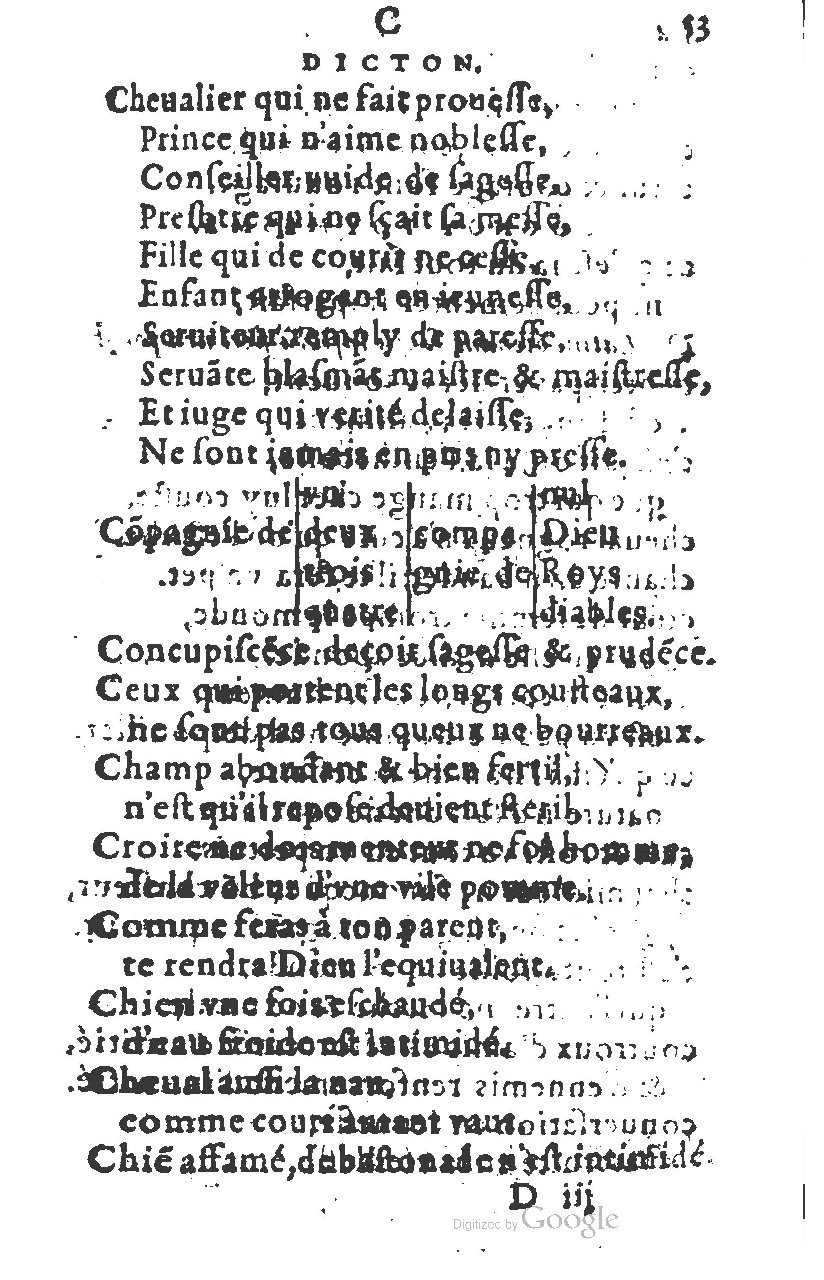 C 53
DICTON.
Cheualier qui ne fait prouësse,
Prince qui n'aime noblesse,
Conſeiller vuide de ſageſſe,
Preſtre qui ne ſçait ſa meſſe,
Fille qui de courir ne ceſſe,
Enfant arrogant en ieuneſſe,
Seruiteur remply de pareſſe,
Seruāte blaſmāt maiſtre & maiſtreſſe,
Et iuge qui verité delaiſſe,
Ne ſont iamais en ny preſſe.
vn nul
Cōpagnie de deux compa Dieu
trois gnie de Roys
quatre diables.
Concupiſcēce deçoit ſageſſe & prudēce.
Ceux qui portent les longs couſteaux,
ne ſont pas tous queux ne bourreaux.
Champ abondant & bien fertil,
n'eſt qu'il repoſe deuient ſteril.
Croire ne menteur ne homme,
de la valeur d'vne vile pomme.
Comme feras à ton parent,
te rendra Dieu l'equiualent.
Chien vne fois eſchaudé,
d'eau froide eſt intimidé.
Cheual
comme courant vaut
Chiē affamé, de baſtonade n'eſt intimidé.
D iij
Digitized by Google